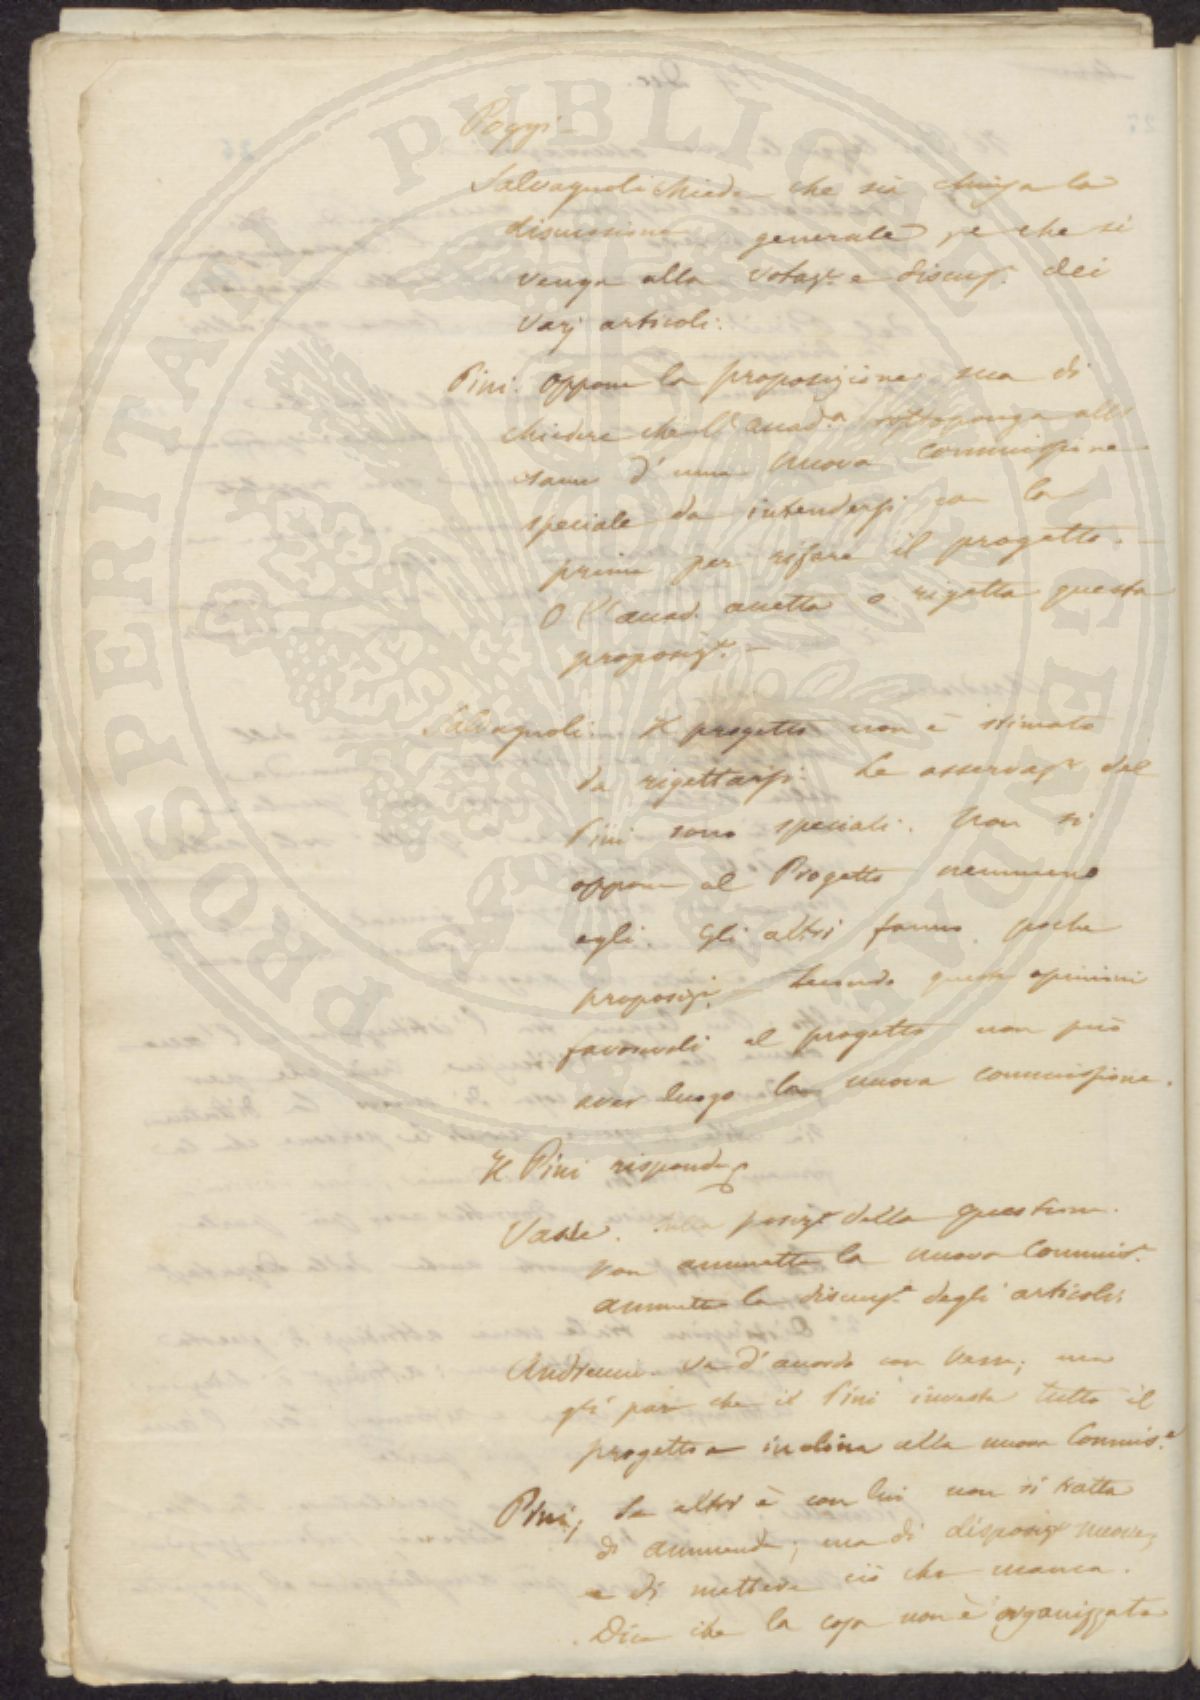 Poggi
Salvagnoli chiede che sia chiusa la
discussione generale, e che si
venga alla votaz.e e discuss.e dei
varj articoli.
Pini. Oppone la proposizione sua di
chiedere che l'Accad.a sottoponga all'e
same d'una nuova commissione
speciale da intendersi con la
prima per rifare il progetto. —
O l'Accad. accetta o rigetta questa
proposiz.e —
Salvagnoli. Il progetto non è stimato
da rigettarsi. Le osservaz.i del
Pini sono speciali. Non si
oppone al Progetto nemmeno
egli. Gli altri fanno poche
proposiz.i — Secondo queste opinioni
favorevoli al progetto non può
aver luogo la nuova commissione.
Il Pini risponde
Vanni. Sulla posiz.e della questione.
Non ammette la nuova Commis.e
ammette la discuss.e degli articoli.
Andreucci. Va d'accordo con Vanni; ma
gli pare che il Pini investa tutto il
progetto e inclina alla nuova Commis.e
Pini, Se altri è con lui non si tratta
di ammende, ma di disposiz.i nuove,
e di mettere ciò che manca.
Dice che la cosa non è organizzata
PROSPERITATI PUBLICAE AUGENDAE